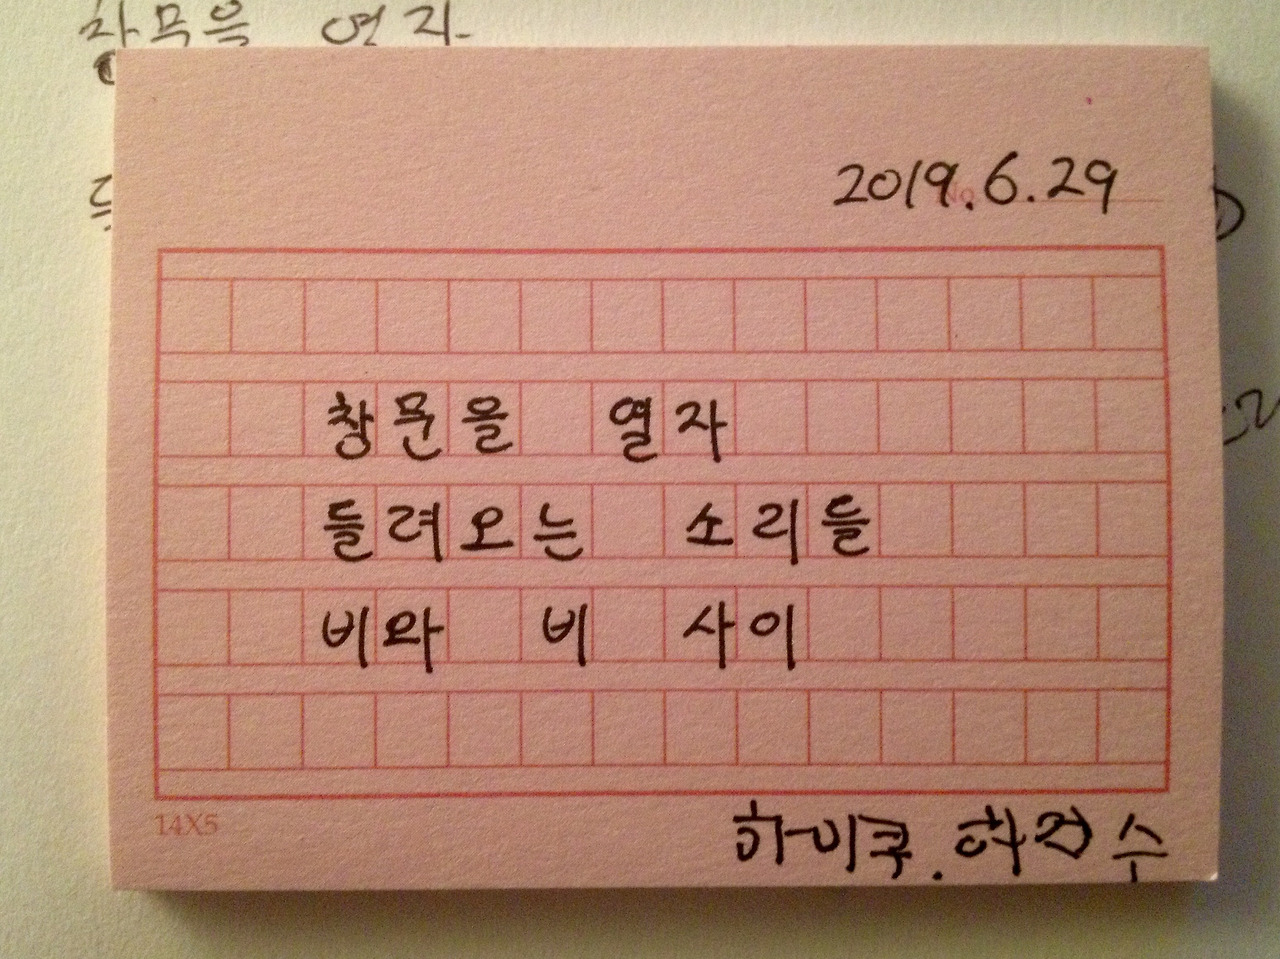 창문을 열자
2019.6.29
No.
창문을 열자
들려오는 소리들
비와 비 사이
14X5
하이쿠.